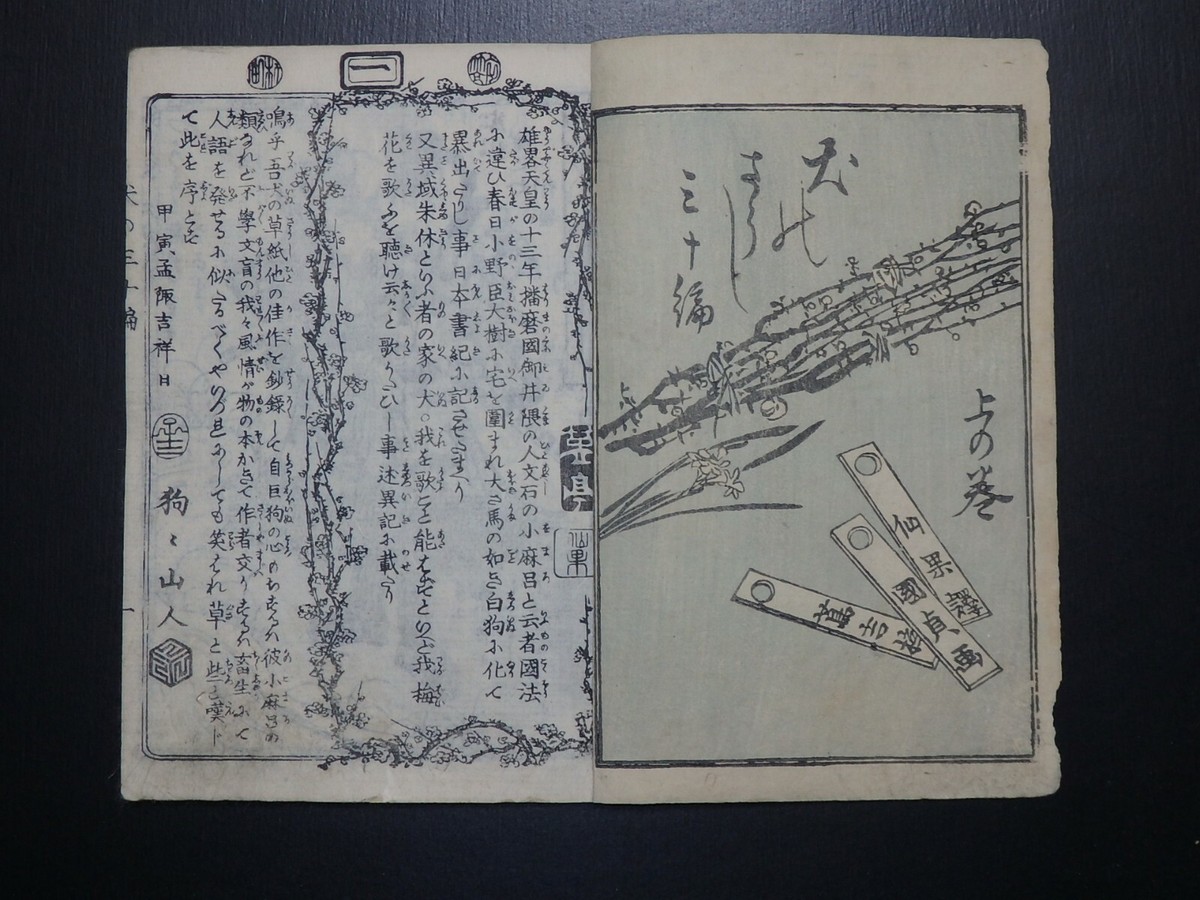 犬の
さうし
三十編
上の巻
仙果譯
國貞画
蔦吉梓
一
仙果
雄畧天皇の十三年播磨國御井隈の人文石の小麻呂と云者國法
に違ひ春日小野臣大樹に宅を圍まれ大さ馬の如き白狗に化て
暴出たりし事日本書紀に記させたまへり
又異域朱休といふ者の家の犬。我を歌こと能はずといふ我梅
花を歌ふを聴け云々と歌うたひし事述異記に載たり
嗚乎吾犬の草紙他の佳作を鈔録して自巨狗の心のあるは彼小麻呂の
類なれど不學文盲の我々風情が物の本かきて作者交りするは畜生にて
人語を発せるに似たるべくや
も笑はれ草と些と嘆じ
て此を序とす
甲寅孟陬吉祥日
狗々山人
犬の三十編
一